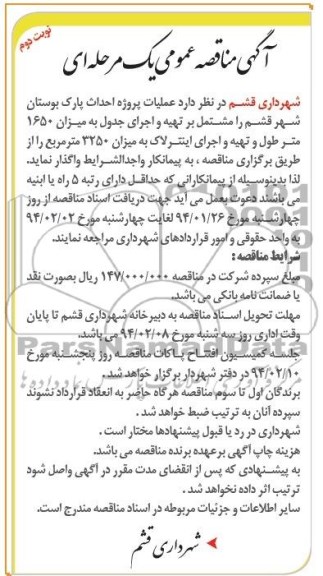 نوبت دوم
آگهی مناقصه عمومی یک مرحله ای
شهرداری قشم در نظر دارد عملیات پروژه احداث پارک بوستان
شهر قشم را مشتمل بر تهیه و اجرای جدول به میزان ۱۶۵۰
متر طول و تهیه و اجرای اینترلاک به میزان ۳۲۵۰ مترمربع را از
طریق برگزاری مناقصه ، به پیمانکار واجدالشرایط واگذار نماید.
لذا بدینوسیله از پیمانکارانی که حداقل دارای رتبه ۵ راه یا ابنیه
می باشند دعوت بعمل می آید جهت دریافت اسناد مناقصه از روز
چهارشنبه مورخ ۹۴/۰۱/۲۶ لغایت چهارشنبه مورخ ۹۴/۰۲/۰۲
به واحد حقوقی و امور قراردادهای شهرداری مراجعه نمایند.
شرایط مناقصه :
مبلغ سپرده شرکت در مناقصه ۱۴۷/۰۰۰/۰۰۰ ریال بصورت نقد
یا ضمانت نامه بانکی می باشد.
مهلت تحویل اسناد مناقصه به دبیرخانه شهرداری قشم تا پایان
وقت اداری روز سه شنبه مورخ ۹۴/۰۲/۰۸ می باشد.
جلسه کمیسیون افتتاح پاکات مناقصه روز پنجشنبه مورخ
۹۴/۰۲/۱۰ در دفتر شهردار برگزار خواهد شد.
برندگان اول تا سوم مناقصه هرگاه حاضر به انعقاد قرارداد نشوند
سپرده آنان به ترتیب ضبط خواهد شد .
شهرداری در رد یا قبول پیشنهادها مختار است .
هزینه چاپ آگهی برعهده برنده مناقصه می باشد.
به پیشنهادی که پس از انقضای مدت مقرر در آگهی واصل شود
ترتیب اثر داده نخواهد شد .
سایر اطلاعات و جزئیات مربوطه در اسناد مناقصه مندرج است.
شهرداری قشم